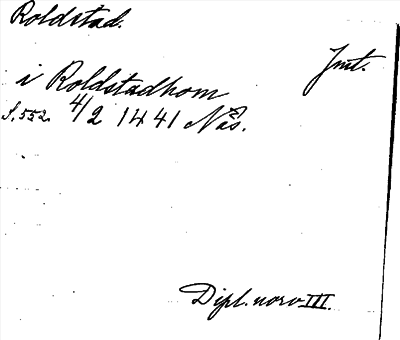 Roldstad.
Jmt.
i Roldstadhom
S. 552. 4/2 1441 Nås.
Dipl. norv III.